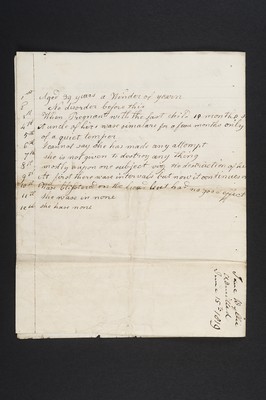 1st Aged 39 years a Winder of yearn
2 No disorder before this
3d When Pregnant with the first child 14 months
4th A uncle of hers was similar for a few months only
5th of a quiet temper
6th I cannot say she has made any attempt
7th she is not given to destroy any thing
8th mostly upon one subject viz destruction of
9th At first there ware intervals but now it continues
10th Was Blistered on the head but had no good effect
11th she was in none
12th she has none
Jane Wyllie
Admitted
June 15th 1819